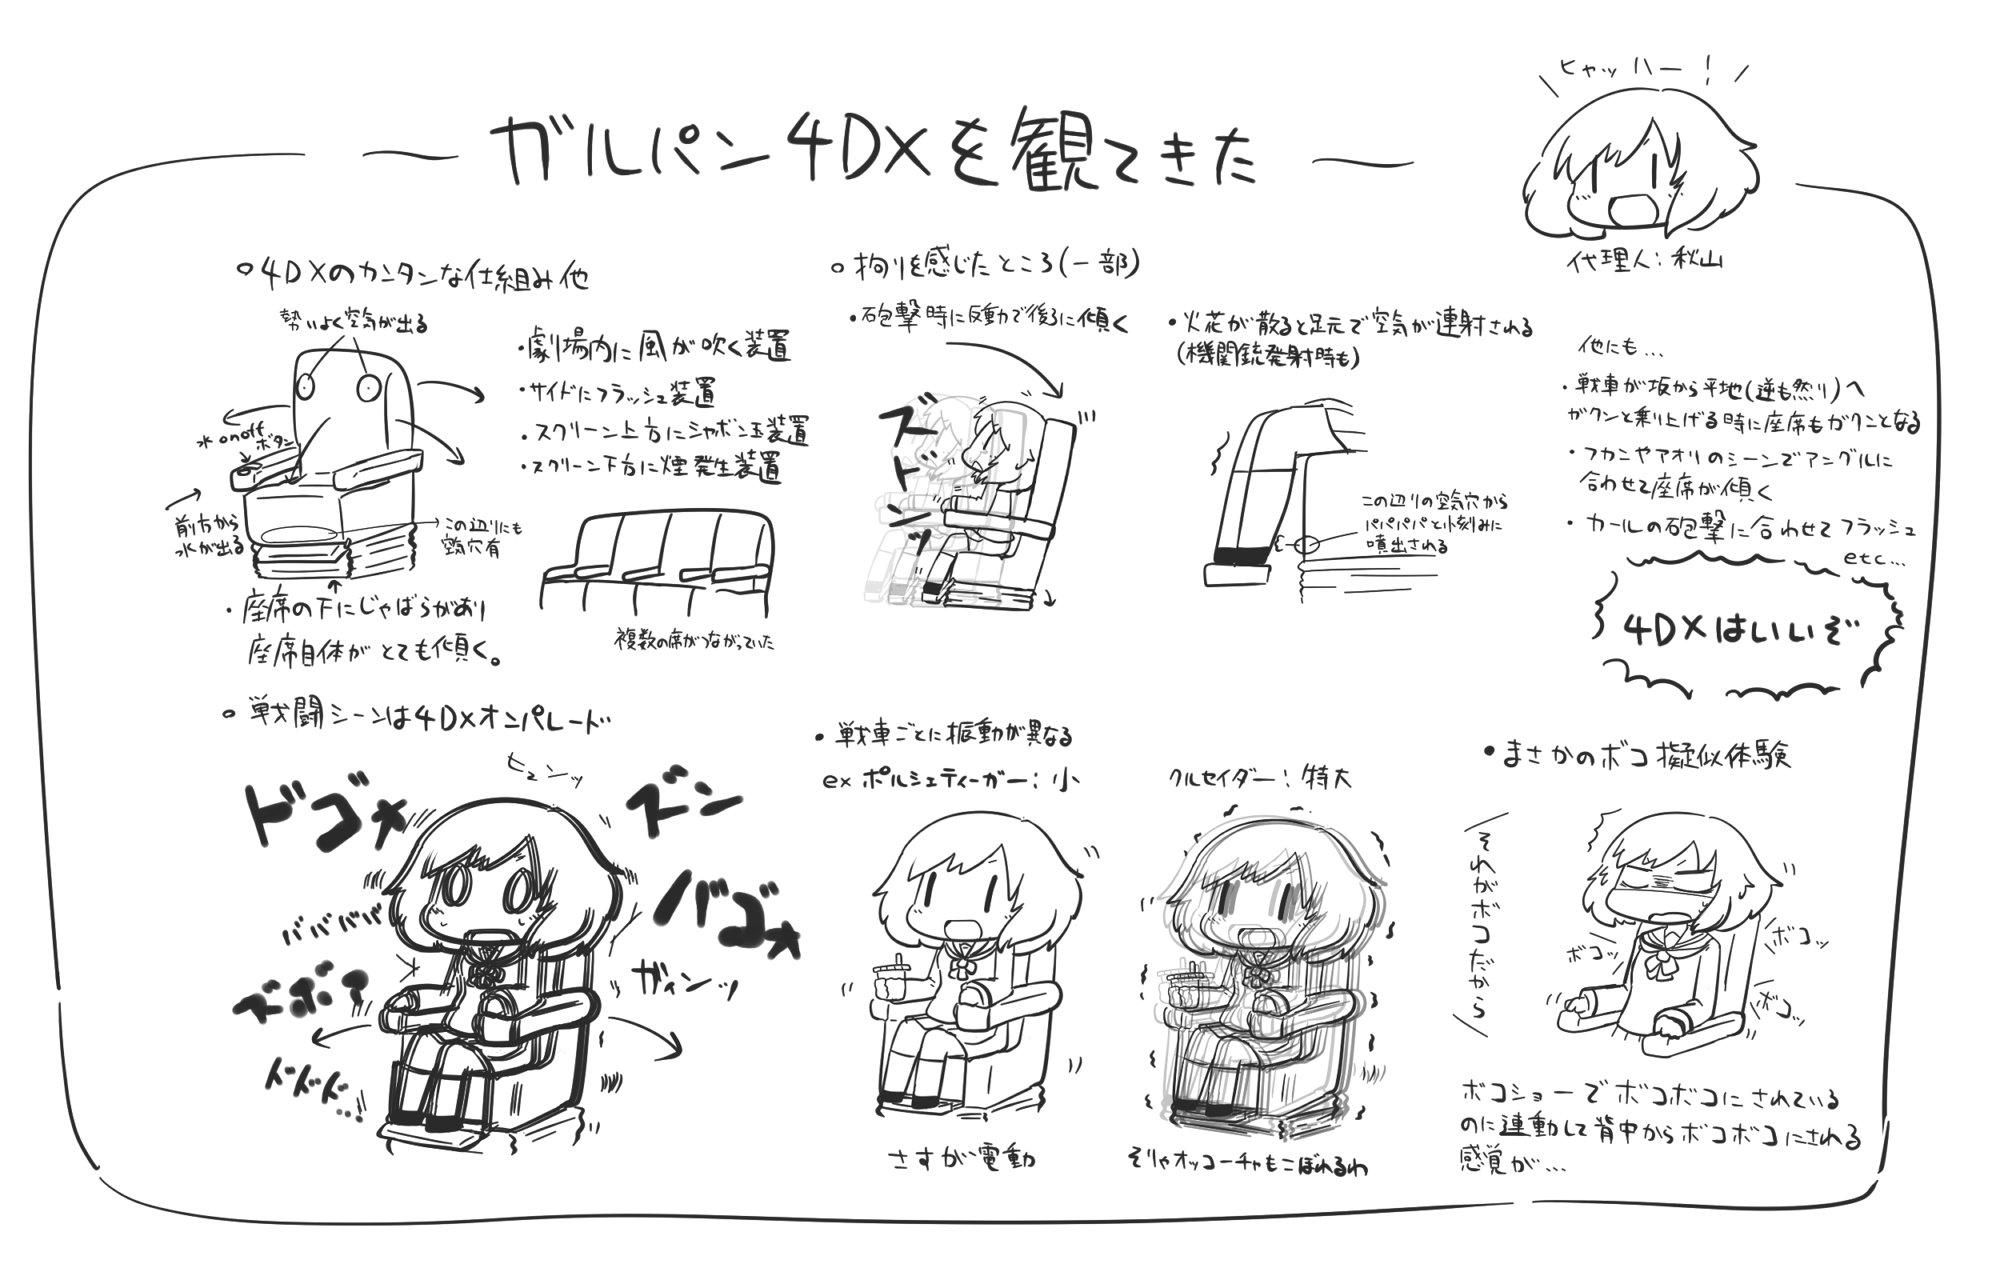 ガルパン4DXを観てきた
ヒャッハー！
代理人：秋山
4DXのカンタンな仕組み他
勢いよく空気が出る
水on offボタン
前方から
水が出る
この辺りにも
空気穴有
・座席の下にじゃばらがあり
座席自体がとても傾く。
・劇場内に風が吹く装置
・サイドにフラッシュ装置
・スクリーン上方にシャボン玉装置
・スクリーン下方に煙発生装置
複数の席がつながっていた
拘りを感じたところ(一部)
・砲撃時に反動で後ろに傾く
ズドンッ
・火花が散ると足元で空気が連射される
(機関銃発射時も)
この辺りの空気穴から
パパパパと小刻みに
噴出される
他にも…
・戦車が坂から平地(逆も然り)へ
ガクンと乗り上げる時に座席もガクンとなる
・フカンやアオリのシーンでアングルに
合わせて座席が傾く
・カールの砲撃に合わせてフラッシュ
etc…
4DXはいいぞ
戦闘シーンは4DXオンパレード
ヒュンッ
ドゴォ
ズン
ババババ
バゴォ
ズボァ
ガィンッ
ドドド…
・戦車ごとに振動が異なる
ex ポルシェティーガー：小
さすが電動
クルセイダー：特大
そりゃオッコーチャもこぼれるわ
・まさかのボコ擬似体験
それがボコだから
ボコッ
ボコッ
ボコッ
ボコショーでボコボコにされている
のに連動して背中からボコボコにされる
感覚が…